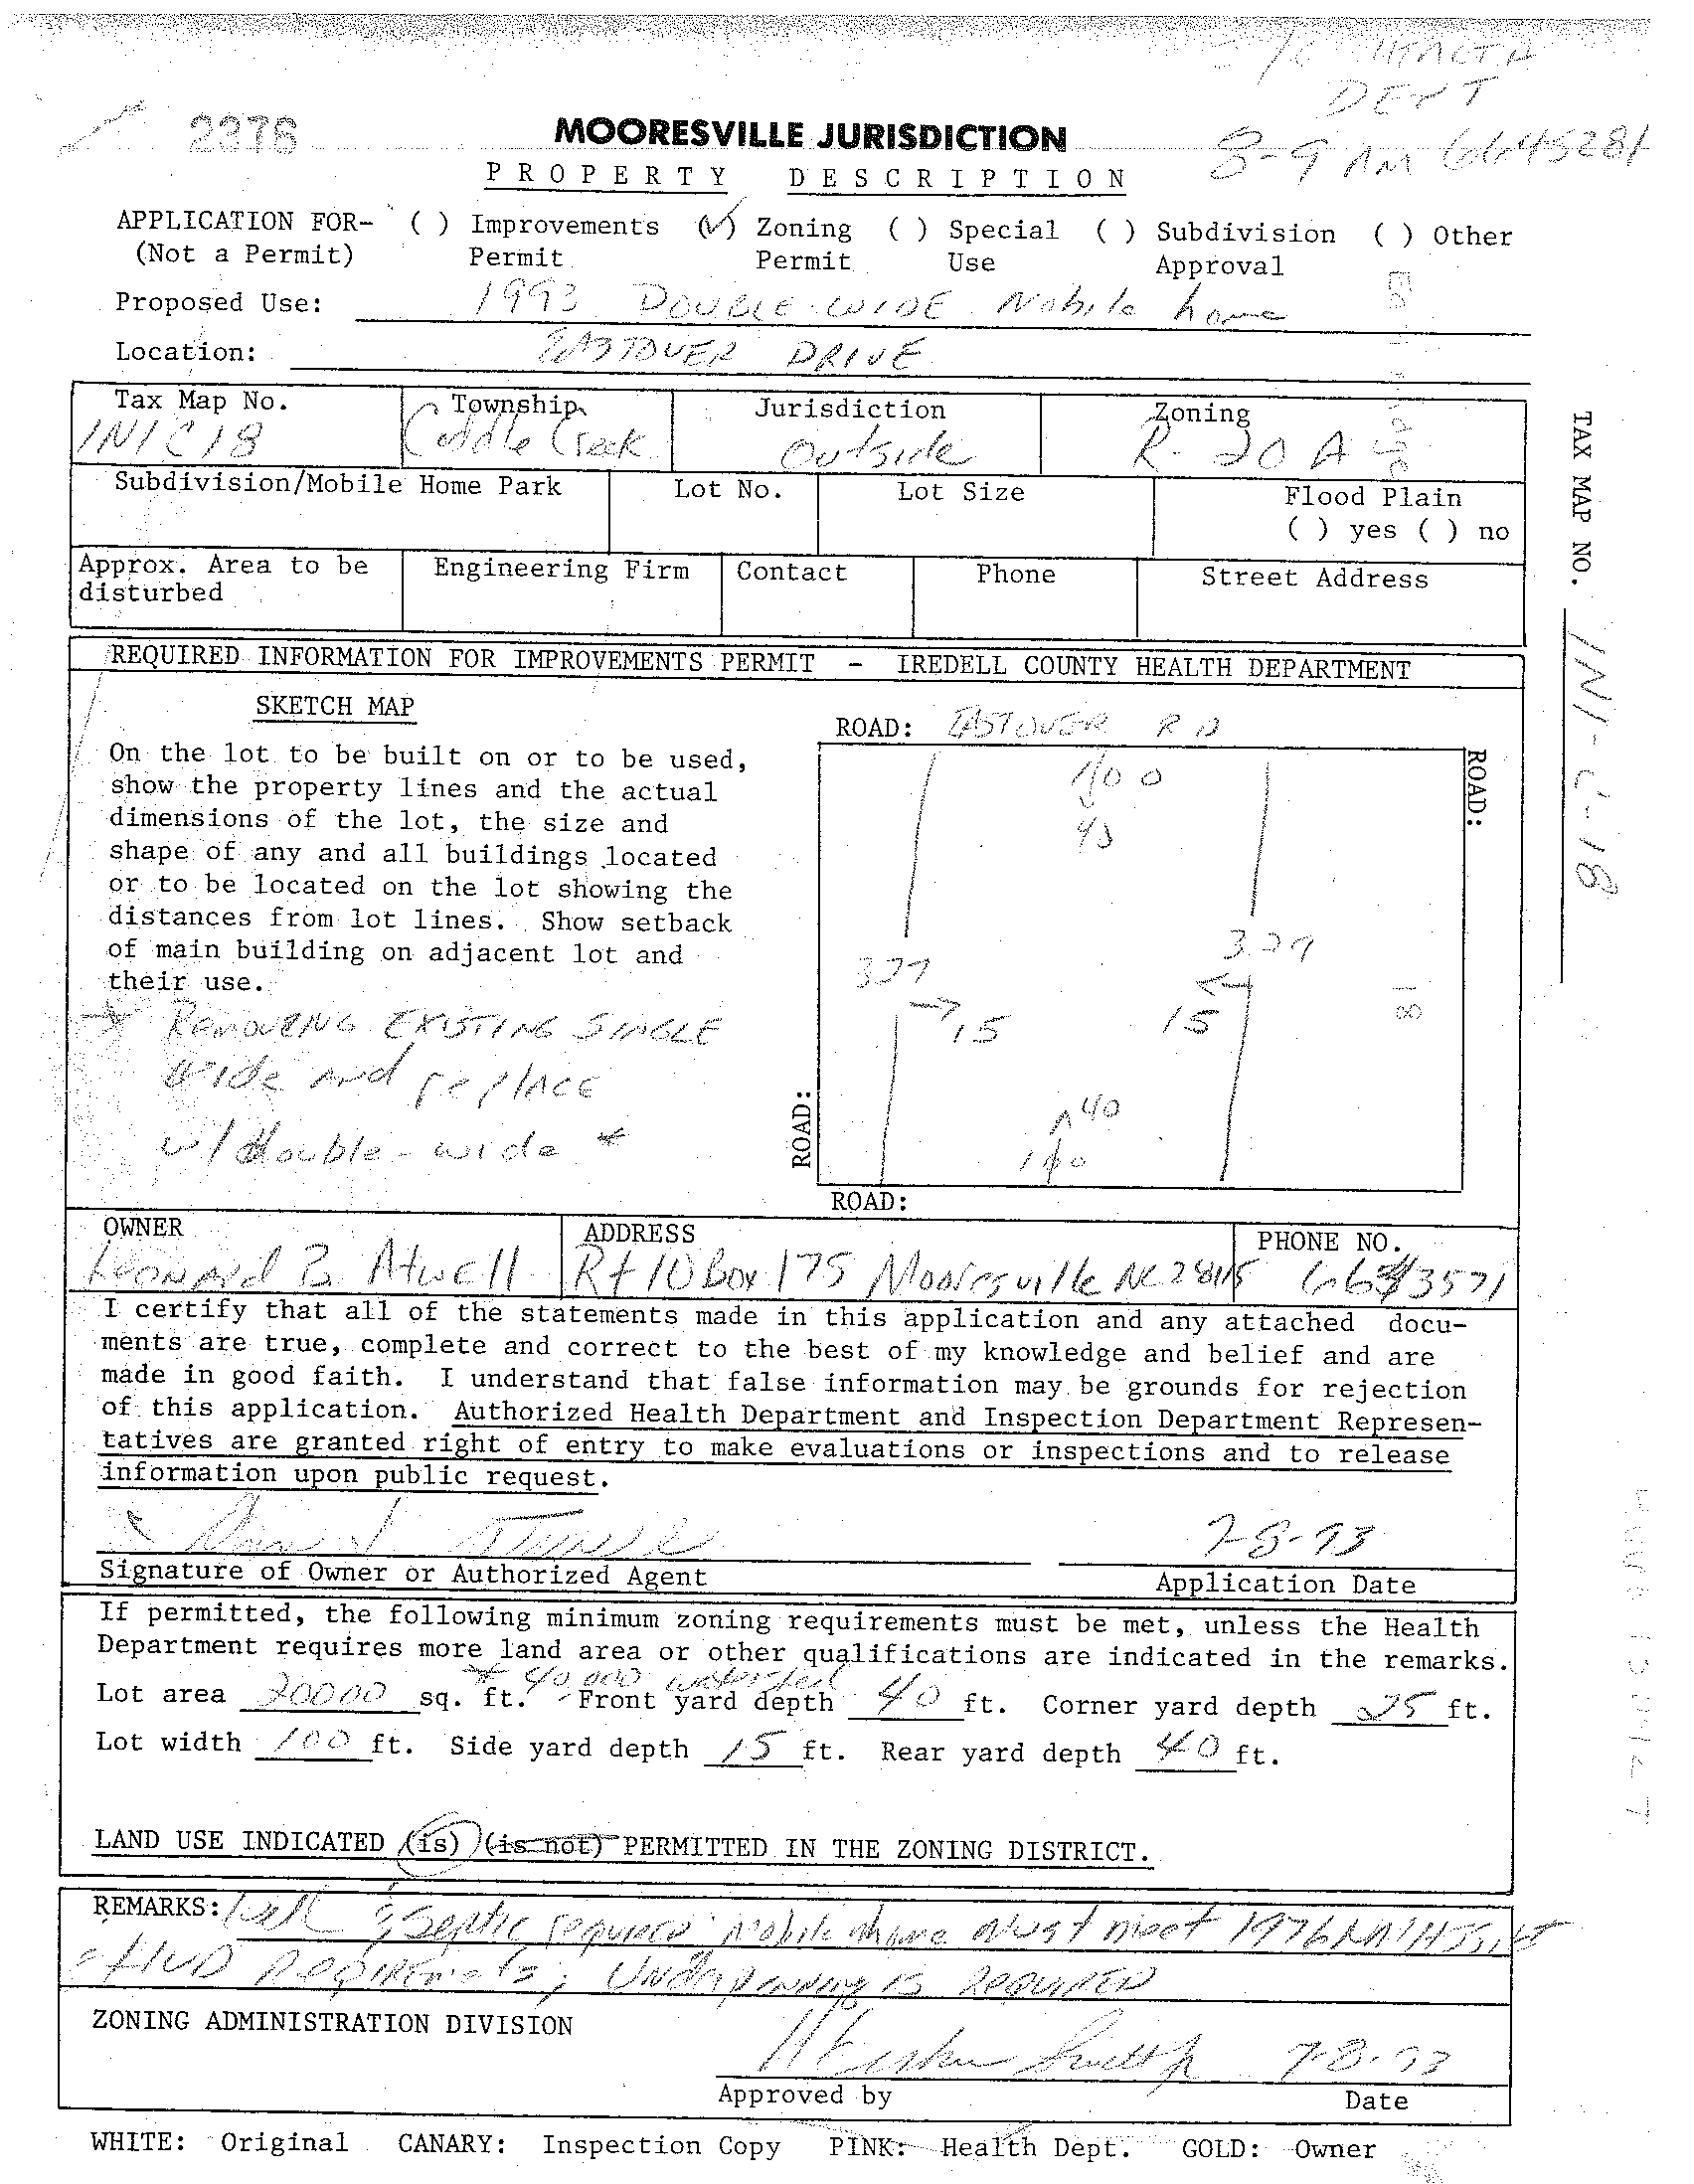 HEALTH
DEPT
2376
MOORESVILLE JURISDICTION
8-9 AM 6645281
PROPERTY DESCRIPTION
APPLICATION FOR- ( ) Improvements (✓) Zoning ( ) Special ( ) Subdivision ( ) Other
(Not a Permit) Permit Permit Use Approval
Proposed Use: 1993 DOUBLE-WIDE Mobile home
Location: EASTOVER DRIVE
Tax Map No. Township Jurisdiction Zoning
1N1C18 Coddle Creek Outside R-20 A
Subdivision/Mobile Home Park Lot No. Lot Size Flood Plain
( ) yes ( ) no
Approx. Area to be Engineering Firm Contact Phone Street Address
disturbed
TAX MAP NO. 1N1-C-18
REQUIRED INFORMATION FOR IMPROVEMENTS PERMIT - IREDELL COUNTY HEALTH DEPARTMENT
SKETCH MAP
On the lot to be built on or to be used,
show the property lines and the actual
dimensions of the lot, the size and
shape of any and all buildings located
or to be located on the lot showing the
distances from lot lines. Show setback
of main building on adjacent lot and
their use.
REMOVING EXISTING SINGLE
wide and replace
w/ double-wide *
ROAD: EASTOVER RD
ROAD:
100
40
327
327
15
15
18
40
100
ROAD:
ROAD:
OWNER ADDRESS PHONE NO.
Leonard B. Atwell Rt 10 Box 175 Mooresville NC 28115 6643571
I certify that all of the statements made in this application and any attached docu-
ments are true, complete and correct to the best of my knowledge and belief and are
made in good faith. I understand that false information may be grounds for rejection
of this application. Authorized Health Department and Inspection Department Represen-
tatives are granted right of entry to make evaluations or inspections and to release
information upon public request.
7-8-93
Signature of Owner or Authorized Agent Application Date
If permitted, the following minimum zoning requirements must be met, unless the Health
Department requires more land area or other qualifications are indicated in the remarks.
* 40,000 watershed
Lot area 20000 sq. ft. Front yard depth 40 ft. Corner yard depth 25 ft.
Lot width 100 ft. Side yard depth 15 ft. Rear yard depth 40 ft.
LAND USE INDICATED (is) (is not) PERMITTED IN THE ZONING DISTRICT.
REMARKS: Well & Septic required mobile home must meet 1976
HUD Requirements; Underpenning is REQUIRED
ZONING ADMINISTRATION DIVISION
7-8-93
Approved by Date
WHITE: Original CANARY: Inspection Copy PINK: Health Dept. GOLD: Owner